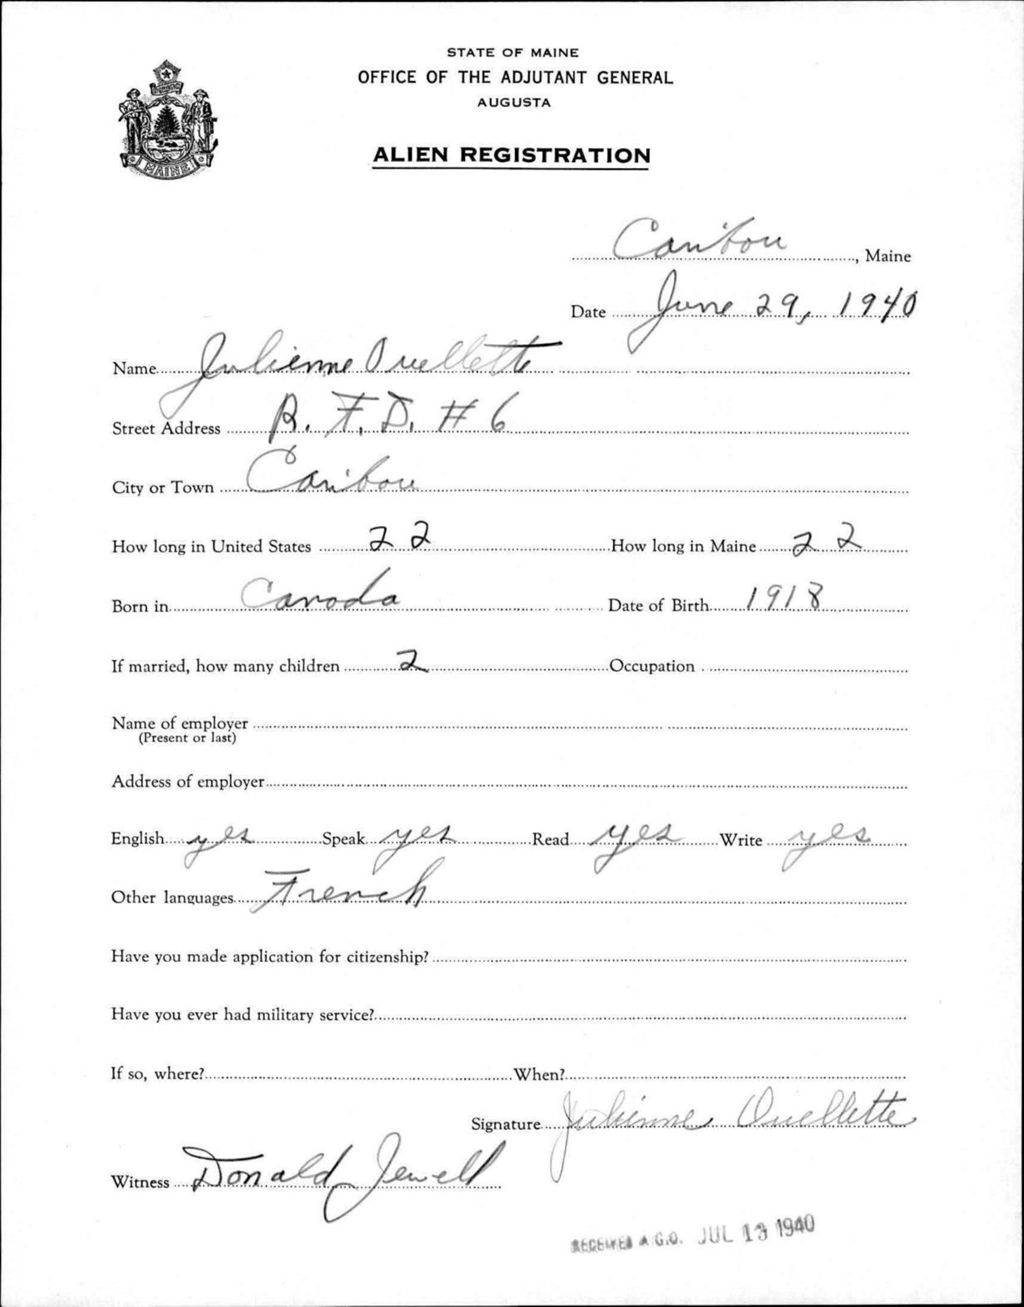 STATE OF MAINE
OFFICE OF THE ADJUTANT GENERAL
AUGUSTA
ALIEN REGISTRATION
MAINE
Caribou, Maine
Date June 29, 1940
Name Julienne Ouellette
Street Address R. F. D. # 6
City or Town Caribou
How long in United States 22 How long in Maine 22
Born in Canada Date of Birth 1918
If married, how many children 2 Occupation
Name of employer
(Present or last)
Address of employer
English yes Speak yes Read yes Write yes
Other languages French
Have you made application for citizenship?
Have you ever had military service?
If so, where? When?
Signature Julienne Ouellette
Witness Donald Jewell
RECEIVED A.G.O. JUL 13 1940